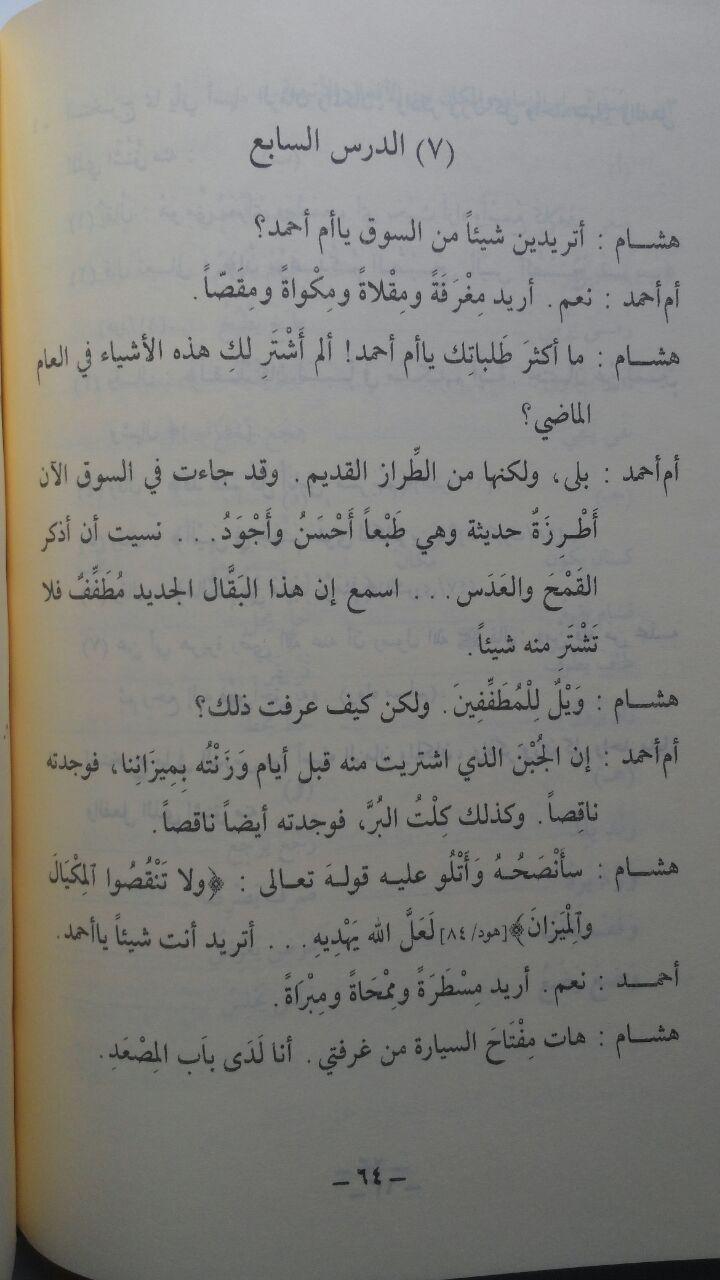 (٧) الدرس السابع
هشـــام : أتريدين شيئاً من السوق ياأم أحمد؟
أم‌أحمد : نعم. أريد مِغْرَفَةً ومِقْلاةً ومِكْواةً ومِقَصّاً.
هشـــام : ما أكثرَ طَلباتِك ياأم أحمد! ألم أَشْتَرِ لكِ هذه الأشياء في العام
الماضي؟
أم‌أحمد : بلى، ولكنها من الطِّراز القديم. وقد جاءت في السوق الآن
أَطْـرِزَةٌ حديثة وهي طَبْعاً أَحْسَنُ وأَجْوَدُ... نسيت أن أذكر
القَمْحَ والعَدَس... اسمع إن هذا البَقَّال الجديد مُطَفِّفٌ فلا
تَشْتَرِ منه شيئاً.
هشـــام : وَيْلٌ لِلْمُطَفِّفِينَ. ولكن كيف عرفت ذلك؟
أم‌أحمد : إن الجُبْنَ الذي اشتريت منه قبل أيام وَزَنْتُه بِمِيزَانِنا، فوجدته
ناقِصاً. وكذلك كِلْتُ البُرَّ، فوجدته أيضاً ناقصاً.
هشـــام : سأَنْصَحُـهُ وَأَتْلُو عليـه قولـهَ تعـالى : ﴿ولا تَنْقُصُوا ٱلمِكْيَالَ
وٱلْمِيَزانَ﴾[هود/٨٤] لَعَلَّ الله يَهْدِيهِ... أتريد أنت شيئاً ياأحمد.
أحمـــد : نعم. أريد مِسْطَرَةً ومِمْحَاةً ومِبْرَاةً.
هشـــام : هات مِفْتَاحَ السيارة من غرفتي. أنا لَدَى باَب المِصْعَدِ.
– ٦٤ –